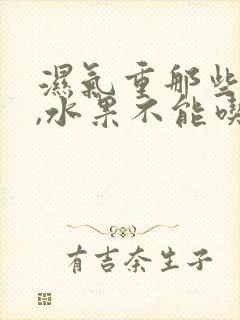 濕氣重那些
,水果不能喫
有吉奈生子